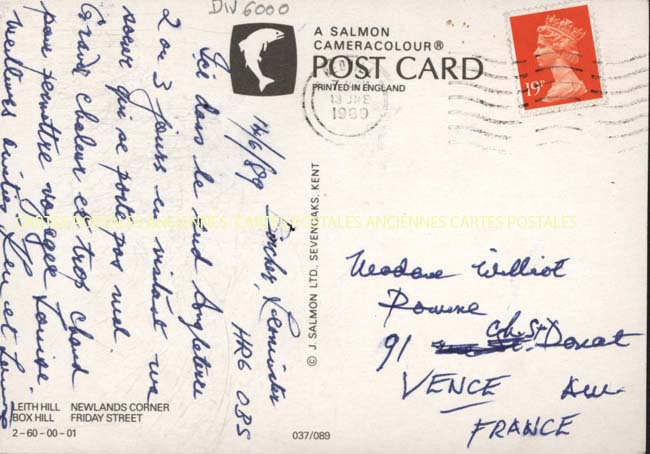 DW 6000
A SALMON
CAMERACOLOUR®
POST CARD
PRINTED IN ENGLAND
19P
13 JNE
1989
14/6/89
Leominster
HR6 0BS
Ici dans le Sud Angleterre
2 ou 3 jours en visitant une
soeur qui se porte pas mal
Grand chaleur et trop chaud
pour permettre voyager Louise
Meilleures amitiés Len et
© J. SALMON LTD., SEVENOAKS, KENT
Madame Williot
91 Ch. St. Donat
VENCE AM
FRANCE
LEITH HILL NEWLANDS CORNER
BOX HILL FRIDAY STREET
2-60-00-01
037/089
CARTES POSTALES ANCIENNES CARTES POSTALES ANCIENNES CARTES POSTALES